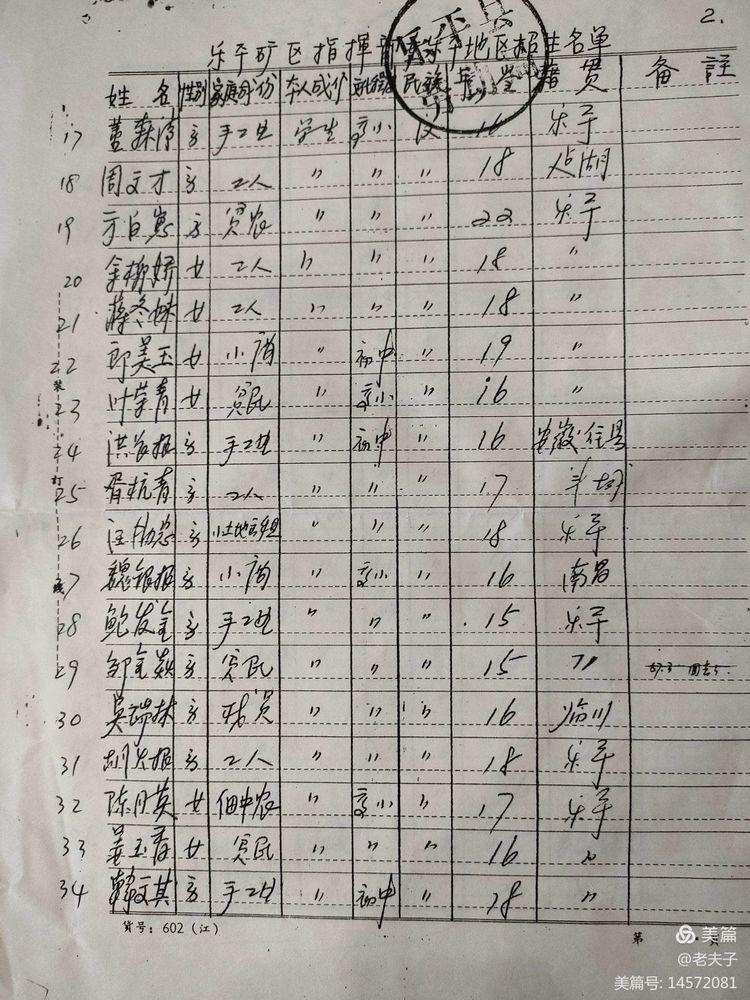 2.
乐平矿区指挥部 乐平地区招生名单
乐平县
姓名 性别 家庭成份 本人成份 文化程度 民族 年龄 籍贯 备註
17 董森涛 男 手工业 学生 高小 汉 16 乐平
18 周文才 男 工人 〃 〃 〃 18 点湖
19 男 贫农 〃 〃 〃 22 乐平
20 余柳娇 女 工人 〃 〃 〃 18 〃
21 蒋冬妹 女 工人 〃 〃 〃 18 〃
22 郎美玉 女 小商 〃 初中 〃 19 〃
装
23 叶荣青 女 贫民 〃 高小 〃 16 〃
24 洪发根 男 手工业 〃 初中 〃 16 安徽
订
25 胥杭青 男 工人 〃 〃 〃 17 丰城
26 汪 男 小土地出租 〃 〃 〃 18 乐平
27 魏银根 男 小商 〃 高小 〃 16 南昌
线
28 鲍发金 男 手工业 〃 〃 〃 15 乐平
29 邹金 男 贫民 〃 〃 〃 15 〃
30 吴瑞林 男 职员 〃 〃 〃 16 临川
31 胡火根 男 工人 〃 〃 〃 18 乐平
32 陈月英 女 佃中农 〃 高小 〃 17 乐平
33 姜玉春 女 贫民 〃 〃 〃 16 〃
34 韩文其 男 手工业 〃 初中 〃 18 〃
货号：602（江）
第 页
美篇
@老夫子
美篇号: 14572081